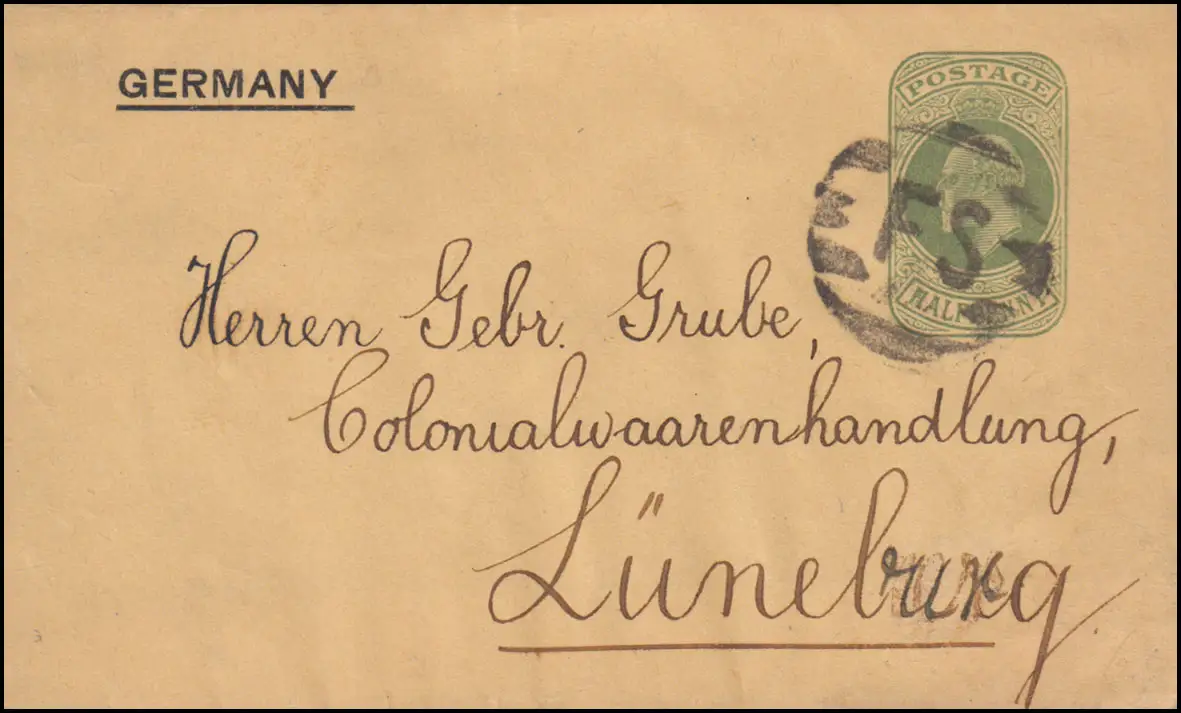 GERMANY
POSTAGE
HALFPENNY
FS
Herren Gebr. Grube,
Colonialwaarenhandlung,
Lüneburg.